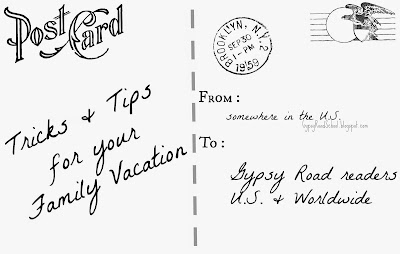 Post Card
Tricks & Tips
for your
Family Vacation
BROOKLYN, N.Y. 2
SEP 30
1-PM
1959
FROM:
somewhere in the U.S.
TO:
Gypsy Road readers
U.S. & Worldwide